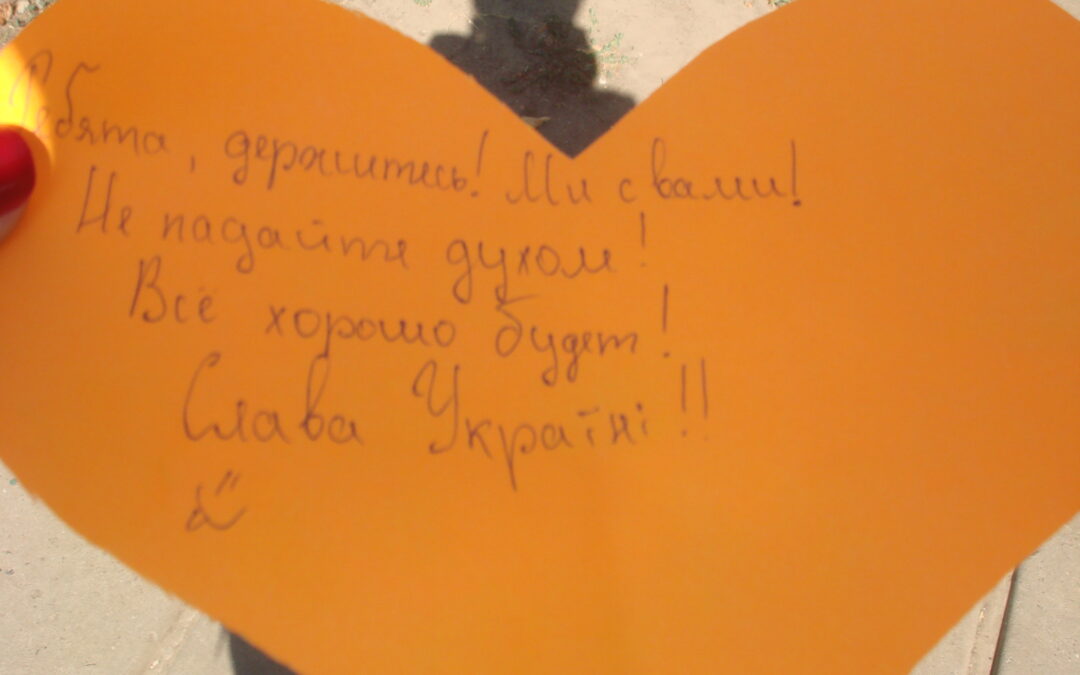 Ребята, держитесь! Ми с вами!
Не падайте духом!
Всё хорошо будет!
Слава Україні!!